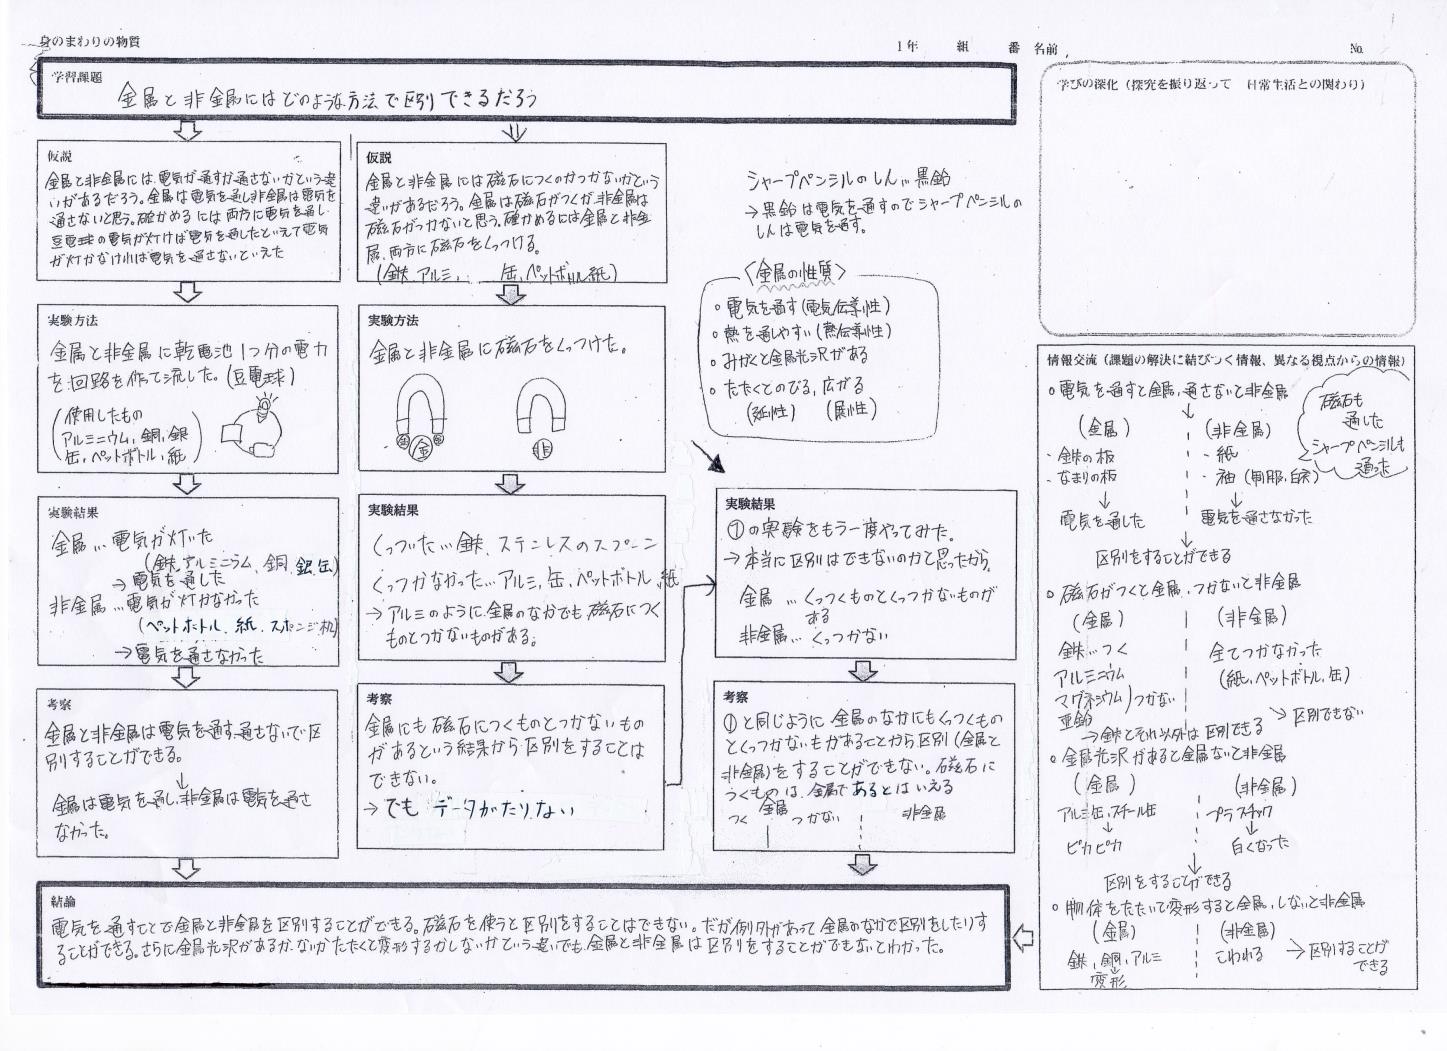 身のまわりの物質
1年 組 番 名前 No.
学習課題
金属と非金属にはどのような方法で区別できるだろう
仮説
金属と非金属には電気が通すか通さないかという違
いがあるだろう。金属は電気を通し非金属は電気を
通さないと思う。確かめるには両方に電気を通し
豆電球の電気が灯けば電気を通したといえて電気
が灯かなければ電気を通さないといえた
実験方法
金属と非金属に乾電池1つ分の電力
を回路を作って流した。(豆電球)
使用したもの
アルミニウム,銅,銀
缶,ペットボトル,紙
実験結果
金属…電気が灯いた
(鉄,アルミニウム,銅,銀,缶)
→電気を通した
非金属…電気が灯かなかった
(ペットボトル,紙,スポンジ,机)
→電気を通さなかった
考察
金属と非金属は電気を通す,通さないで区
別することができる。
↓
金属は電気を通し,非金属は電気を通さ
なかった。
仮説
金属と非金属には磁石につくのかつかないかという
違いがあるだろう。金属は磁石がつくが,非金属は
磁石がつかないと思う。確かめるには金属と非金
属,両方に磁石をくっつける。
(鉄,アルミ, 缶,ペットボトル,紙)
実験方法
金属と非金属に磁石をくっつけた。
金 金 金 非
実験結果
くっついた…鉄,ステンレスのスプーン
くっつかなかった…アルミ,缶,ペットボトル,紙
→アルミのように,金属のなかでも磁石につく
ものとつかないものがある。
考察
金属にも磁石につくものとつかないもの
があるという結果から区別をすることは
できない。
→でも データがたりない
シャープペンシルのしん…黒鉛
→黒鉛は電気を通すのでシャープペンシルの
しんは電気を通す。
〈金属の性質〉
○電気を通す(電気伝導性)
○熱を通しやすい(熱伝導性)
○みがくと金属光沢がある
○たたくとのびる,広がる
(延性) (展性)
実験結果
①の実験をもう一度やってみた。
→本当に区別はできないのかと思ったから,
金属…くっつくものとくっつかないものが
ある
非金属…くっつかない
考察
①と同じように金属のなかにもくっつくもの
とくっつかないもがあることから区別(金属と
非金属)をすることができない。磁石に
つくものは,金属であるとはいえる
金属 非金属
つく つかない
学びの深化(探究を振り返って 日常生活との関わり)
情報交流(課題の解決に結びつく情報、異なる視点からの情報)
○電気を通すと金属,通さないと非金属
(金属) (非金属)
・鉄の板 ・紙
・なまりの板 ・袖(制服,白衣)
↓ ↓
電気を通した 電気を通さなかった
区別をすることができる
磁石も
通した
シャープペンシルも
通った
○磁石がつくと金属,つかないと非金属
(金属) (非金属)
鉄…つく 全てつかなかった
アルミニウム (紙,ペットボトル,缶)
マグネシウム)つかない
亜鉛
→鉄とそれ以外は区別できる →区別できない
○金属光沢があると金属ないと非金属
(金属) (非金属)
アルミ缶,スチール缶 プラスチック
↓ ↓
ピカピカ 白くなった
区別をすることができる
○物体をたたいて変形すると金属,しないと非金属
(金属) (非金属)
鉄,銅,アルミ こわれる →区別することが
変形 できる
結論
電気を通すことで金属と非金属を区別することができる。磁石を使うと区別をすることはできない。だが例外があって金属のなかで区別をしたりす
ることができる。さらに金属光沢があるか,ないか,たたくと変形するかしないかという違いでも,金属と非金属は区別をすることができるとわかった。